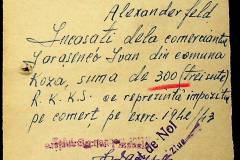 Alexanderfeld
Incasati dela comerciantul
Tarasenco Ivan din comuna
Roza, suma de 300 (treisute)
R. K. K. S. ce reprezintă impozitul
pe comert pe exerc. 1942/43
de Not